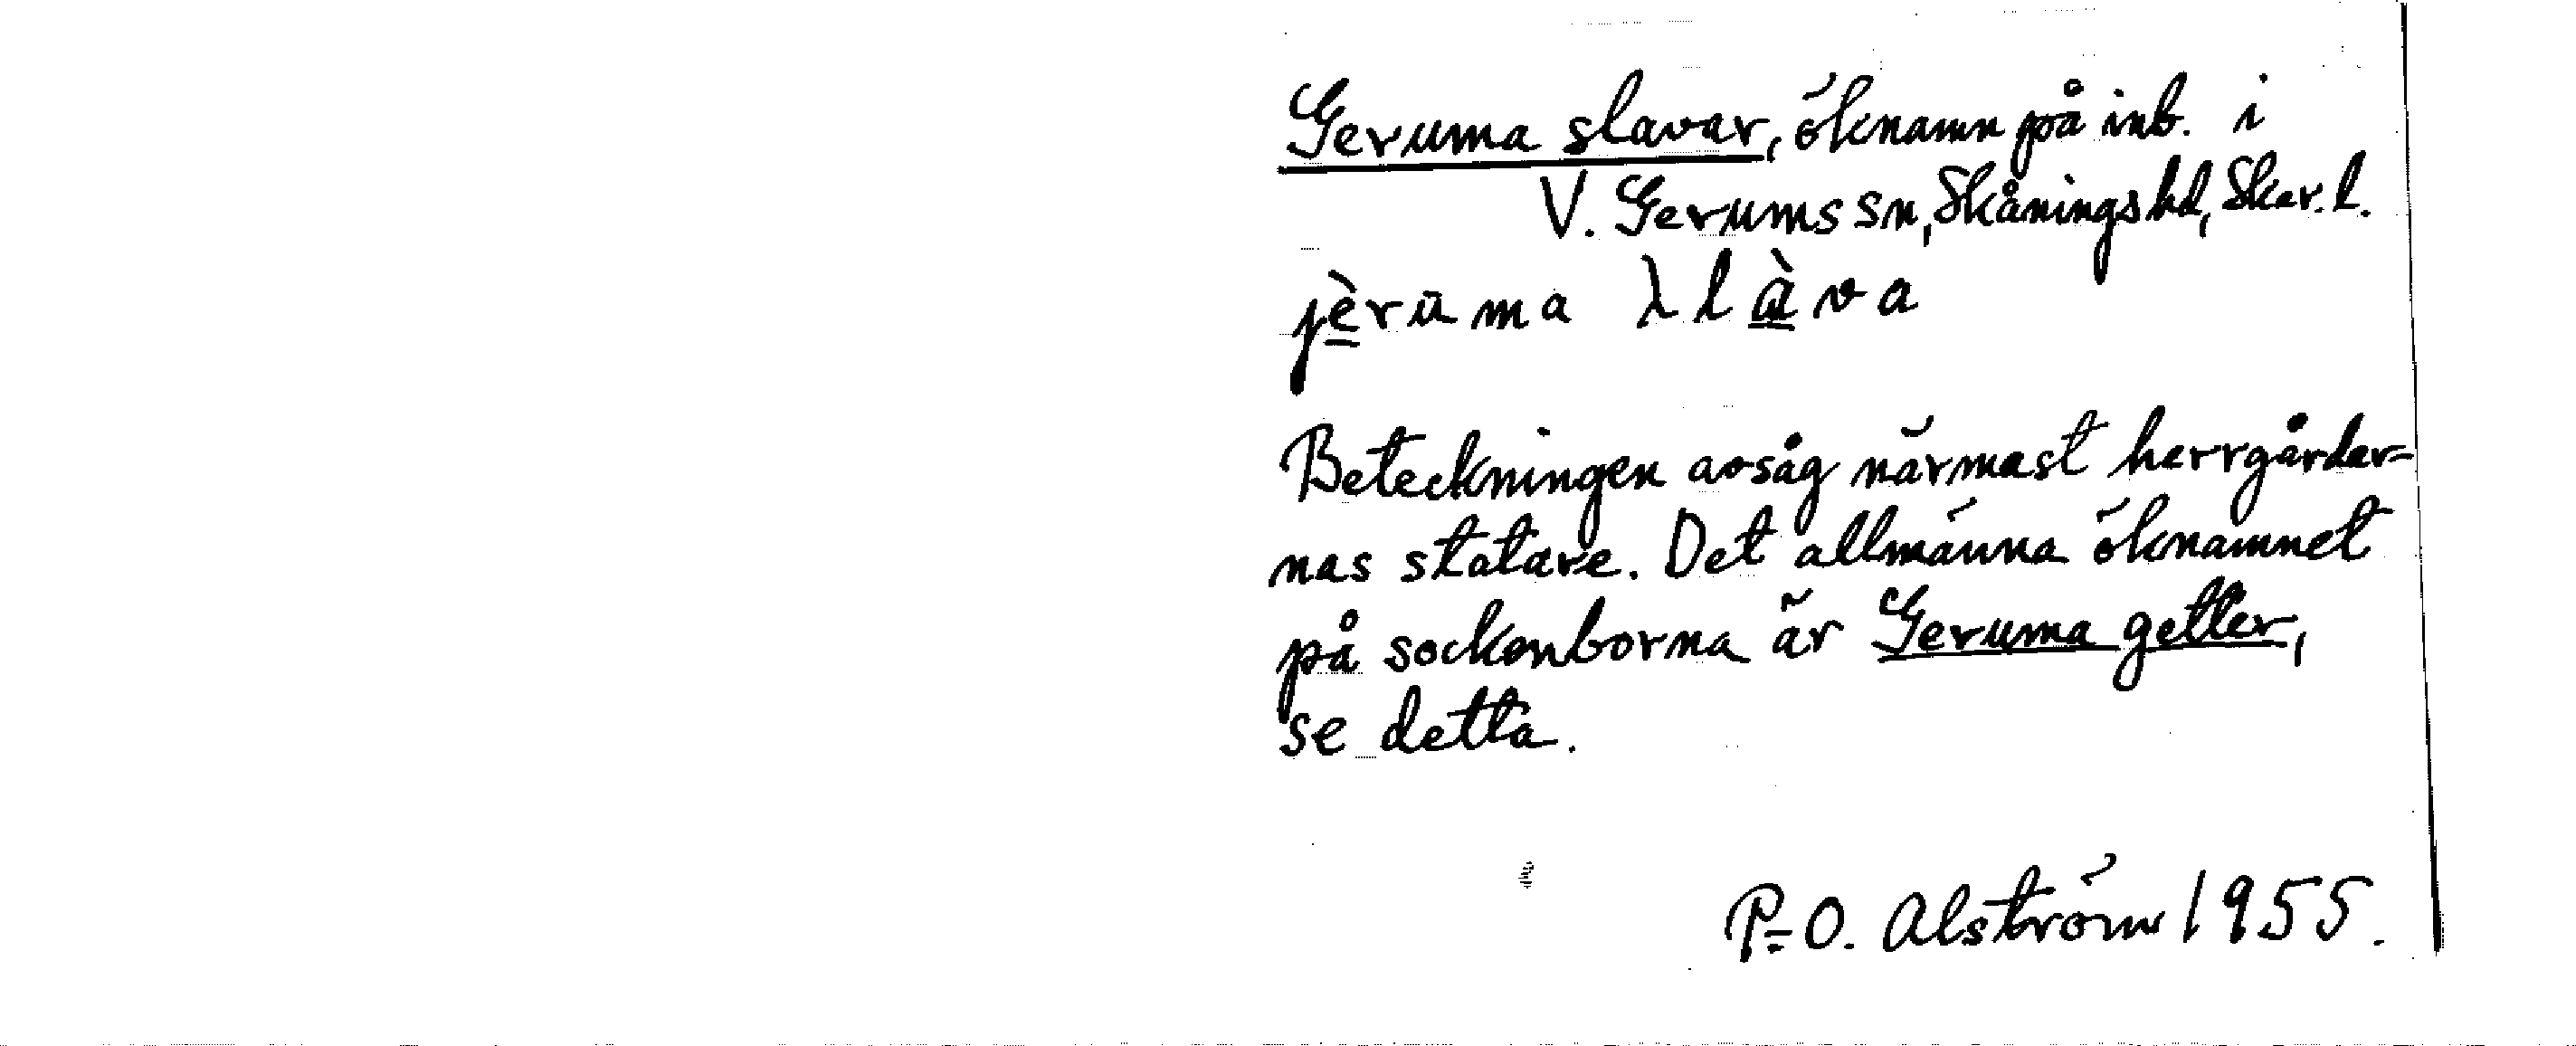 Geruma slavar, öknamn på inb. i
V. Gerums sn, Skånings hd, Skar. l.
jèrūma λlàva
Beteckningen avsåg närmast herrgårdar-
nas statare. Det allmänna öknamnet
på sockenborna är Geruma getter,
se detta.
P.-O. Alström 1955.